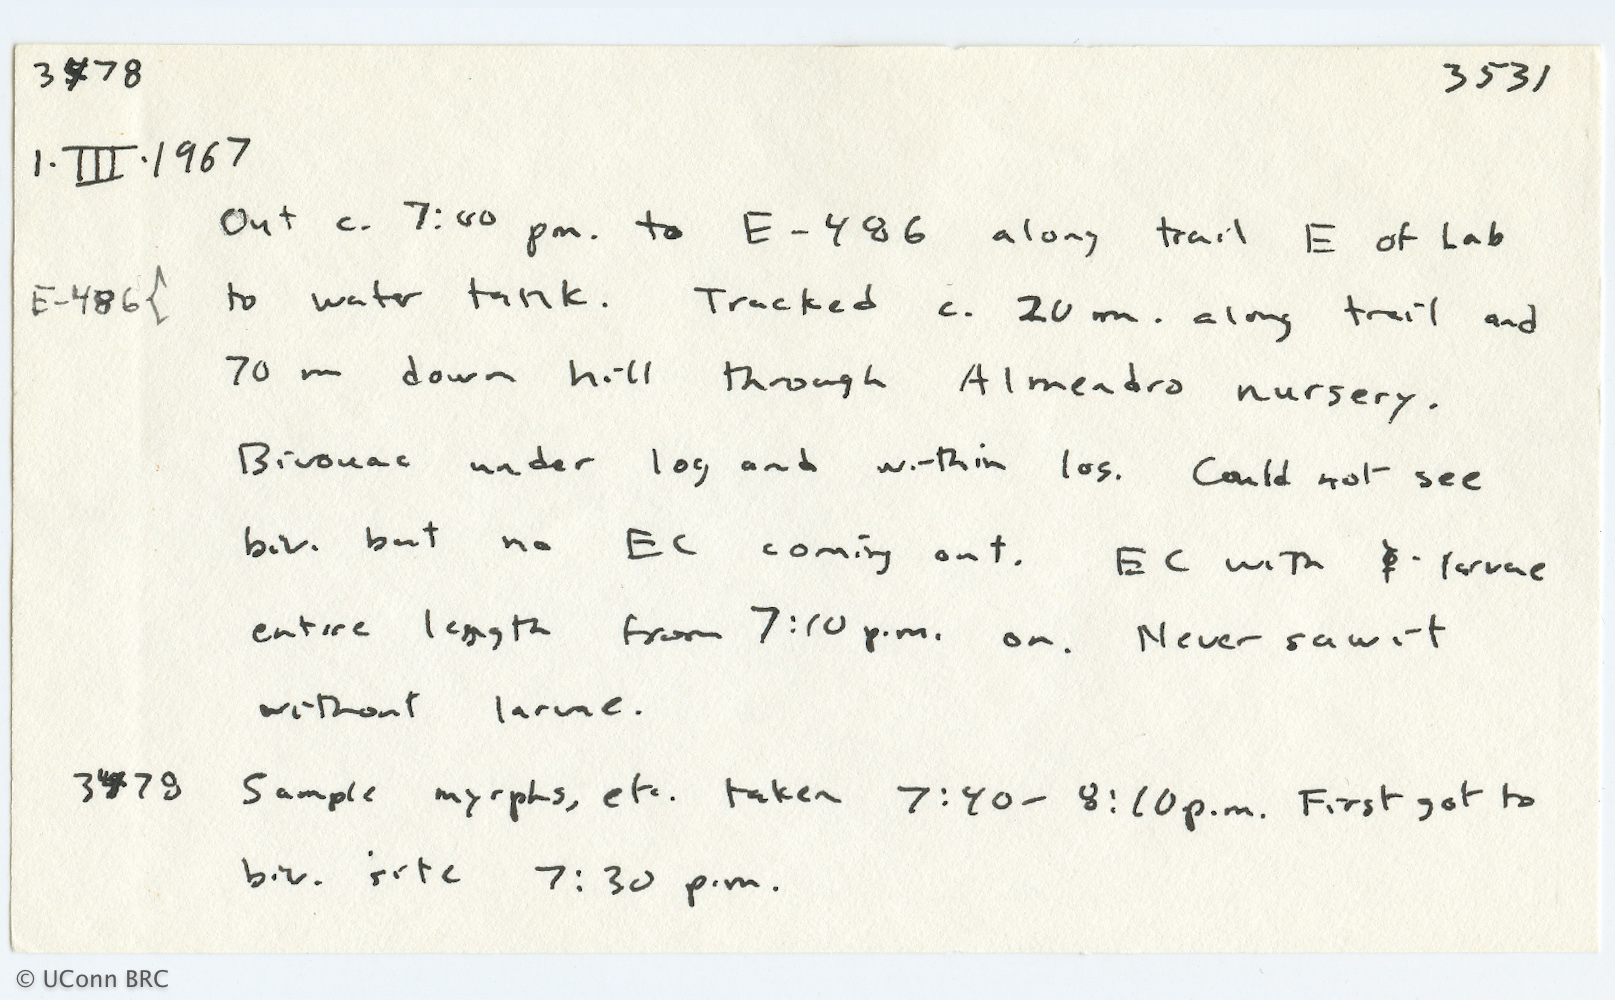 3478 3531
1·III·1967
Out c. 7:00 pm. to E-486 along trail E of Lab
E-486{ to water tank. Tracked c. 20 m. along trail and
70 m down hill through Almendro nursery.
Bivouac under log and within log. Could not see
biv. but no EC coming out. EC with larvae
entire length from 7:10 p.m. on. Never saw it
without larvae.
3478 Sample myrphs, etc. taken 7:40-8:10 p.m. First got to
biv. site 7:30 p.m.
© UConn BRC